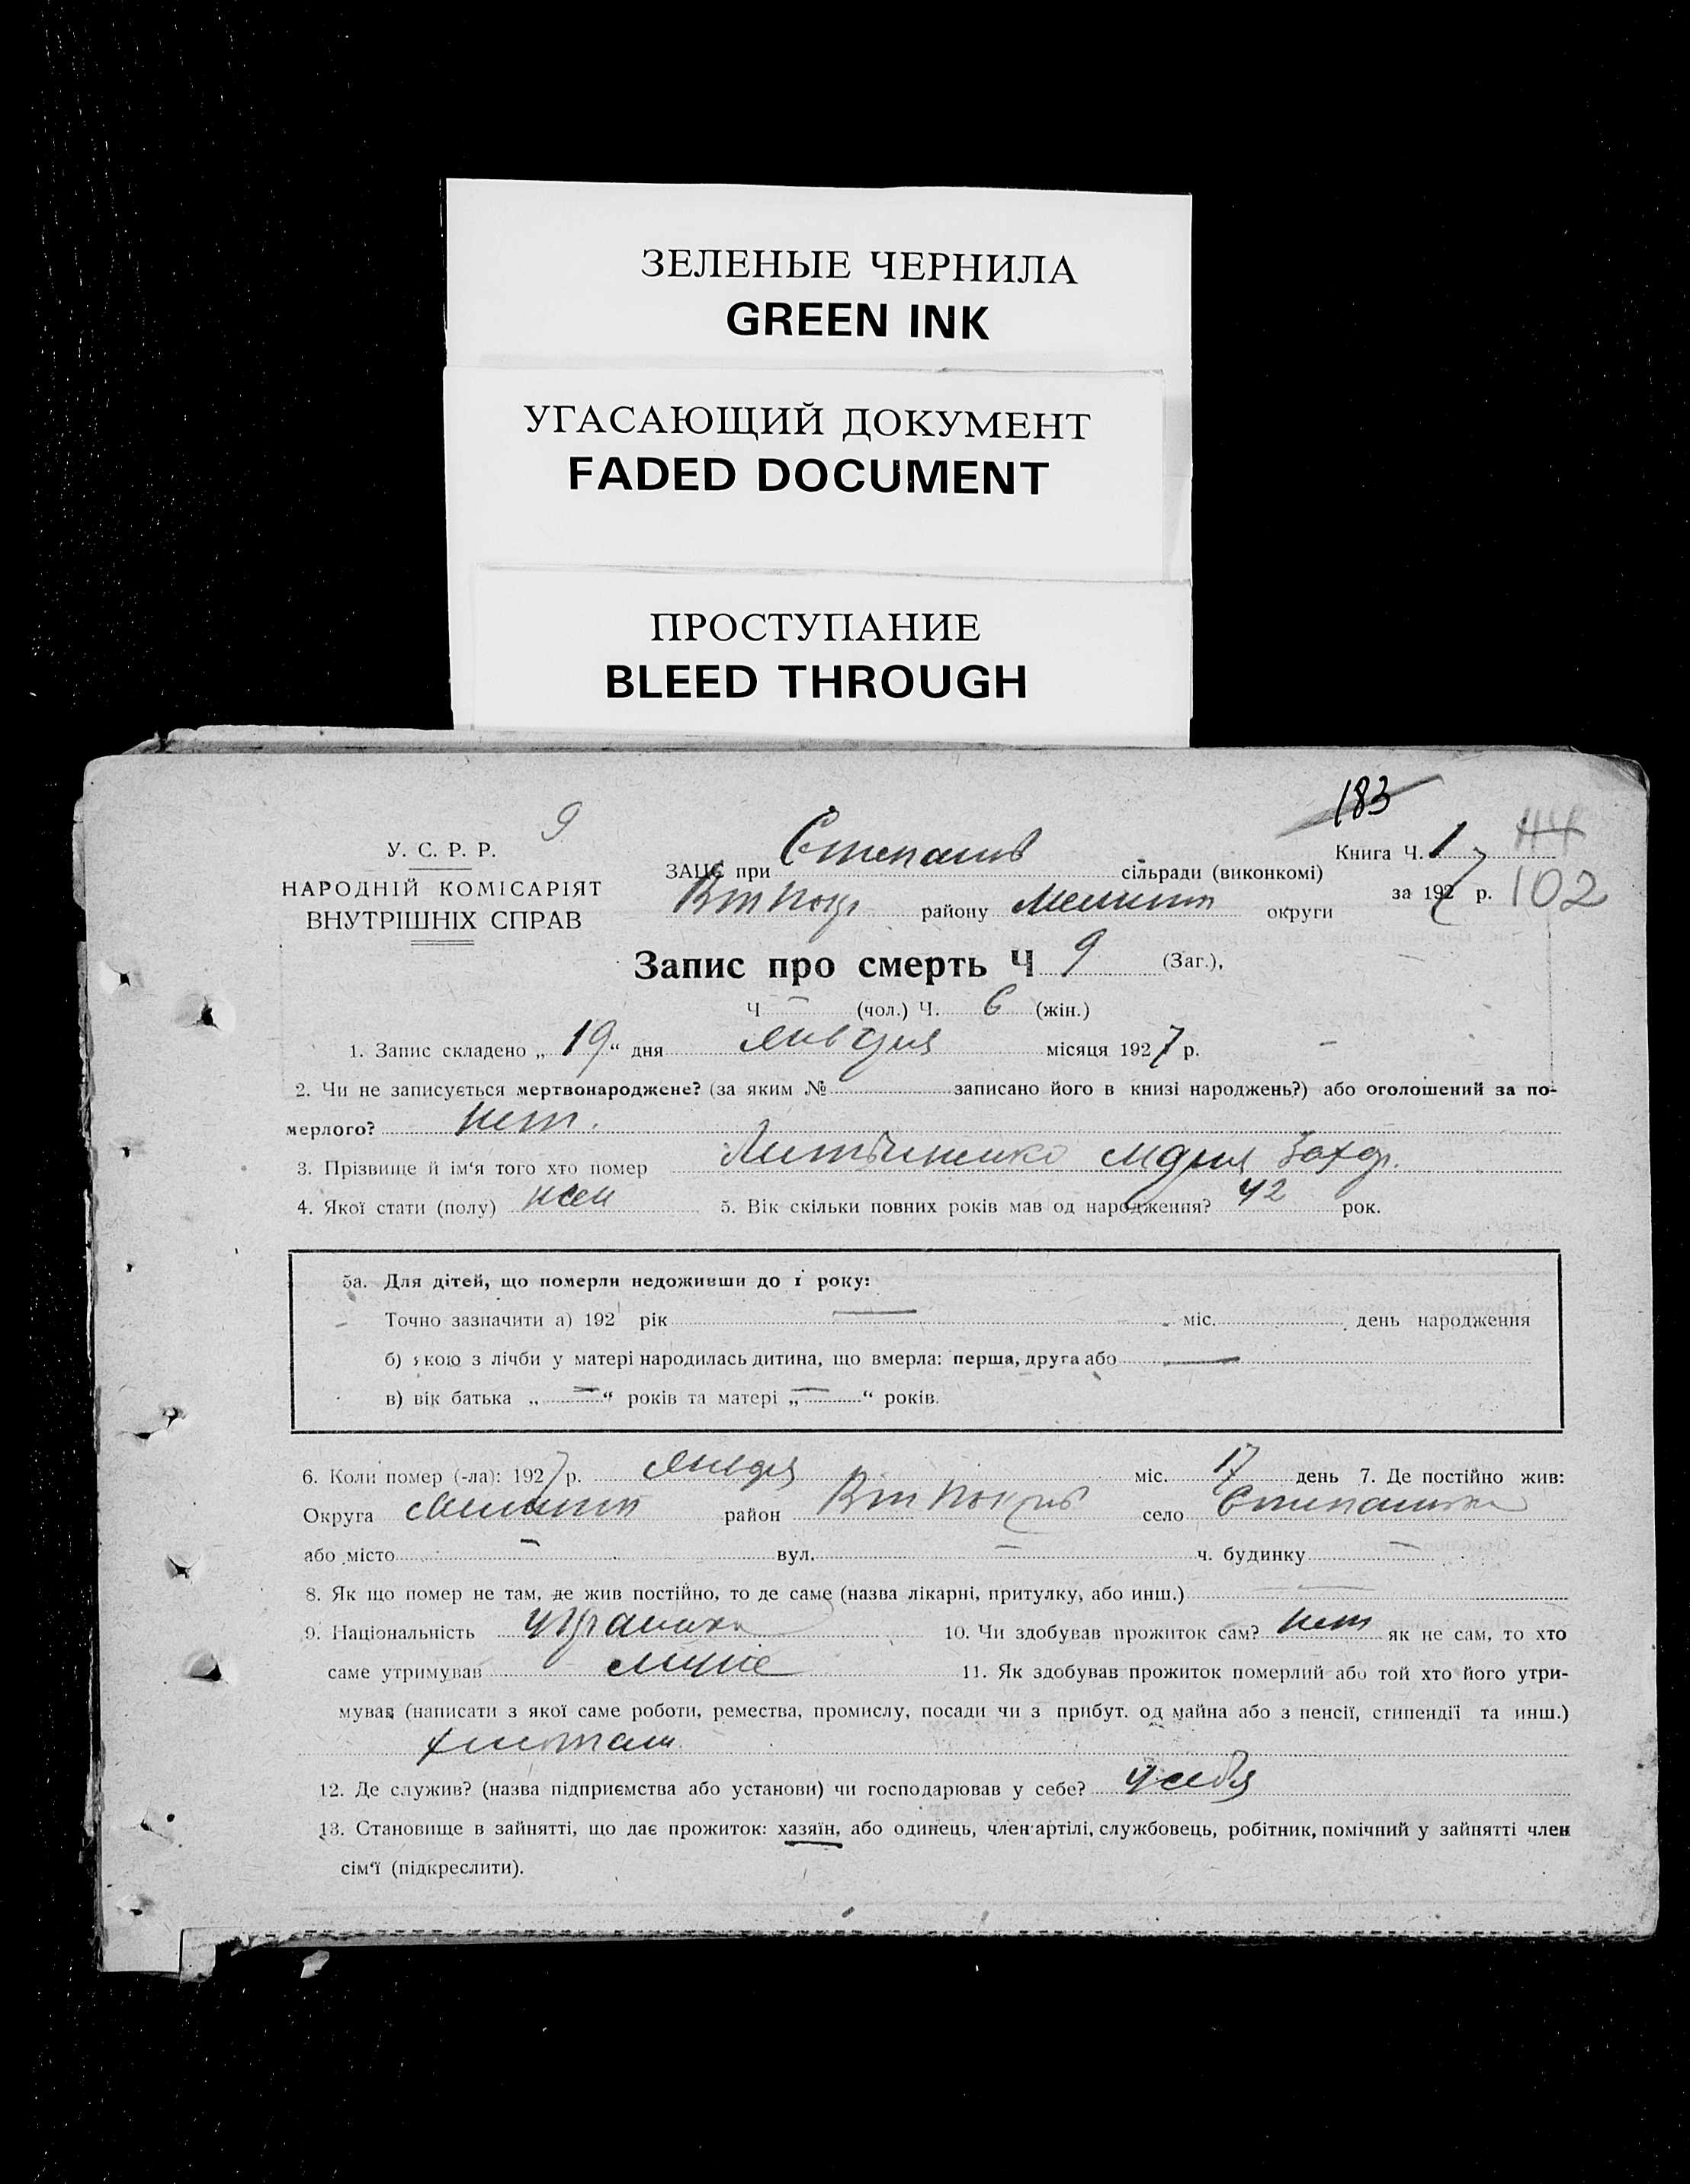 ЗЕЛЕНЫЕ ЧЕРНИЛА
GREEN INK
УГАСАЮЩИЙ ДОКУМЕНТ
FADED DOCUMENT
ПРОСТУПАНИЕ
BLEED THROUGH
183
9
У. С. Р. Р.
НАРОДНІЙ КОМІСАРІЯТ
ВНУТРІШНІХ СПРАВ
ЗАЦС при Степанів сільради (виконкомі)
району округи
Книга Ч. 1 44
за 1927 р. 102
Запис про смерть Ч 9 (Заг.),
Ч — (чол.) Ч. 6 (жін.)
1. Запис складено „ 19 “ дня января місяця 1927 р.
2. Чи не записується мертвонароджене? (за яким № записано його в книзі народжень?) або оголошений за по-
мерлого? нет.
3. Прізвище й ім‘я того хто помер Литвиненко Мария Захар.
4. Якої стати (полу) жен 5. Вік скільки повних років мав од народження? 42 рок.
5а. Для дітей, що померли недоживши до 1 року:
Точно зазначити а) 192 рік — міс. день народження
б) якою з лічби у матері народилась дитина, що вмерла: перша, друга або —
в) вік батька „ — “ років та матері „ — “ років.
6. Коли помер (-ла): 1927 р. января міс. 17 день 7. Де постійно жив:
Округа район село Степановка
або місто — вул. — ч. будинку —
8. Як що помер не там, де жив постійно, то де саме (назва лікарні, притулку, або инш.) —
9. Національність украинка 10. Чи здобував прожиток сам? нет як не сам, то хто
саме утримував муже 11. Як здобував прожиток померлий або той хто його утри-
мував (написати з якої саме роботи, ремества, промислу, посади чи з прибут. од майна або з пенсії, стипендії та инш.)
12. Де служив? (назва підприємства або установи) чи господарював у себе? у себя
13. Становище в зайнятті, що дає прожиток: хазяїн, або одинець, член артілі, службовець, робітник, помічний у зайнятті член
сім‘ї (підкреслити).